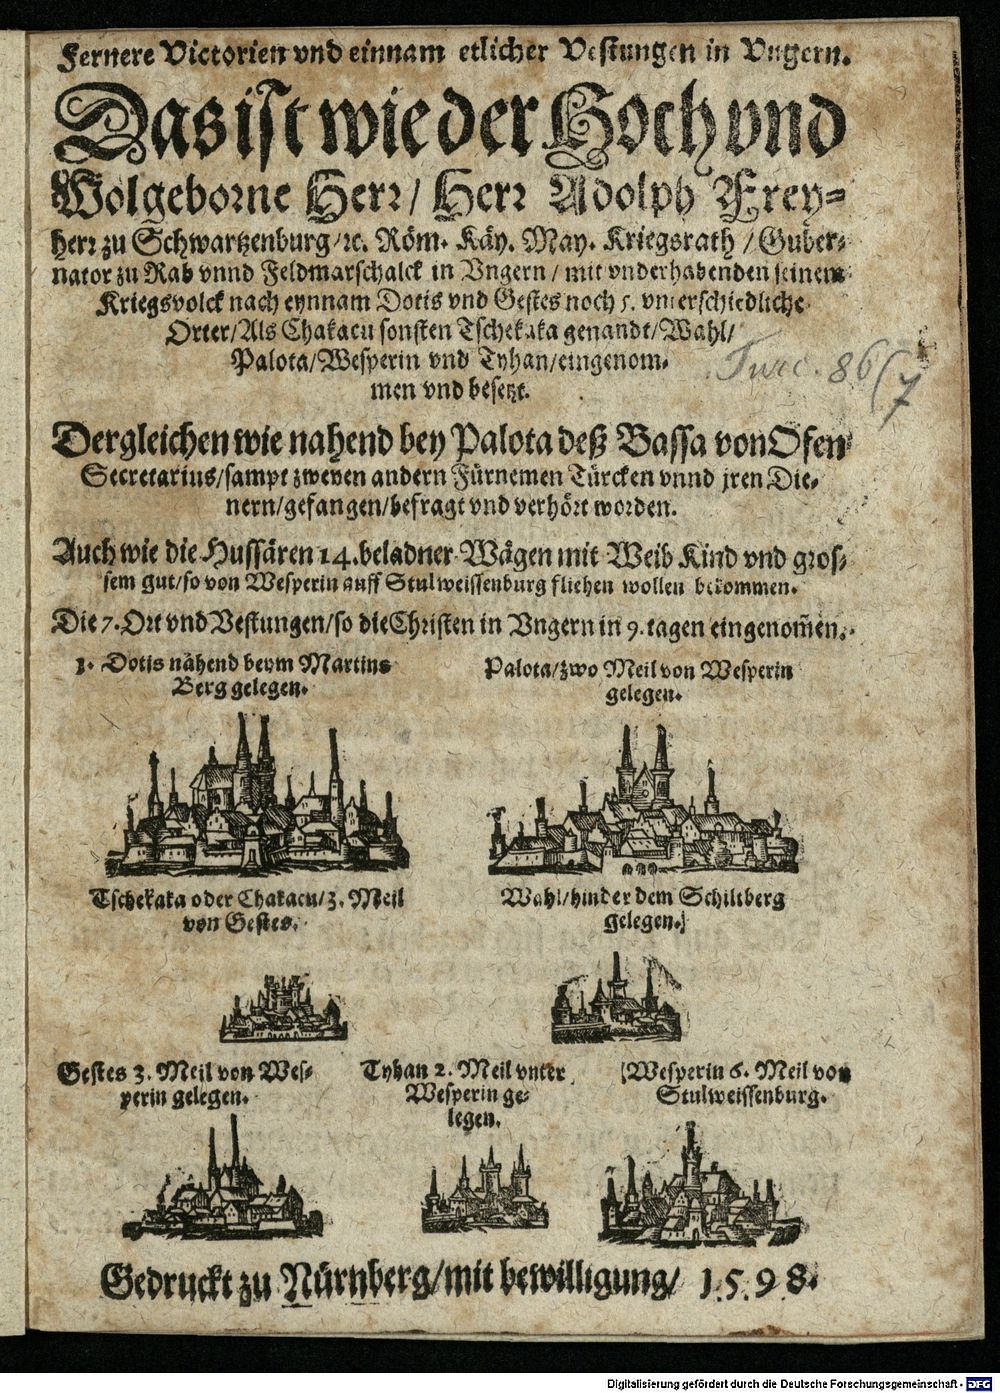 Fernere Victorien vnd einnam etlicher Vestungen in Vngern.
Das ist wie der Hoch vnd
Wolgeborne Herr / Herr Adolph Frey=
herr zu Schwartzenburg / ꝛc. Röm. Käy. May. Kriegsrath / Guber=
nator zu Rab vnnd Feldmarschalck in Vngern / mit vnderhabenden seinem
Kriegsvolck nach eynnam Dotis vnd Gestes noch 5. vnterschiedliche
Orter / Als Chakacu sonsten Tschekaka genandt / Wahl /
Palota / Wesperin vnd Tyhan / eingenom=
men vnd besetzt.
Dergleichen wie nahend bey Palota deß Bassa von Ofen
Secretarius / sampt zweyen andern Fürnemen Türcken vnnd jren Die=
nern / gefangen / befragt vnd verhört worden.
Auch wie die Hussären 14. beladner Wägen mit Weib Kind vnd gros=
sem gut / so von Wesperin auff Stulweissenburg fliehen wollen bekommen.
Die 7. Ort vnd Vestungen / so die Christen in Vngern in 9. tagen eingenom̃en.
1. Dotis nähend beym Martins
Berg gelegen.
Palota / zwo Meil von Wesperin
gelegen.
Tschekaka oder Chakacu / 3. Meil
von Gestes.
Wahl / hinder dem Schiltberg
gelegen.
Gestes 3. Meil von Wes=
perin gelegen.
Tyhan 2. Meil vnter
Wesperin ge=
legen.
Wesperin 6. Meil von
Stulweissenburg.
Gedruckt zu Nürnberg / mit bewilligung / 1598.
Turc. 86(7
Digitalisierung gefördert durch die Deutsche Forschungsgemeinschaft - DFG